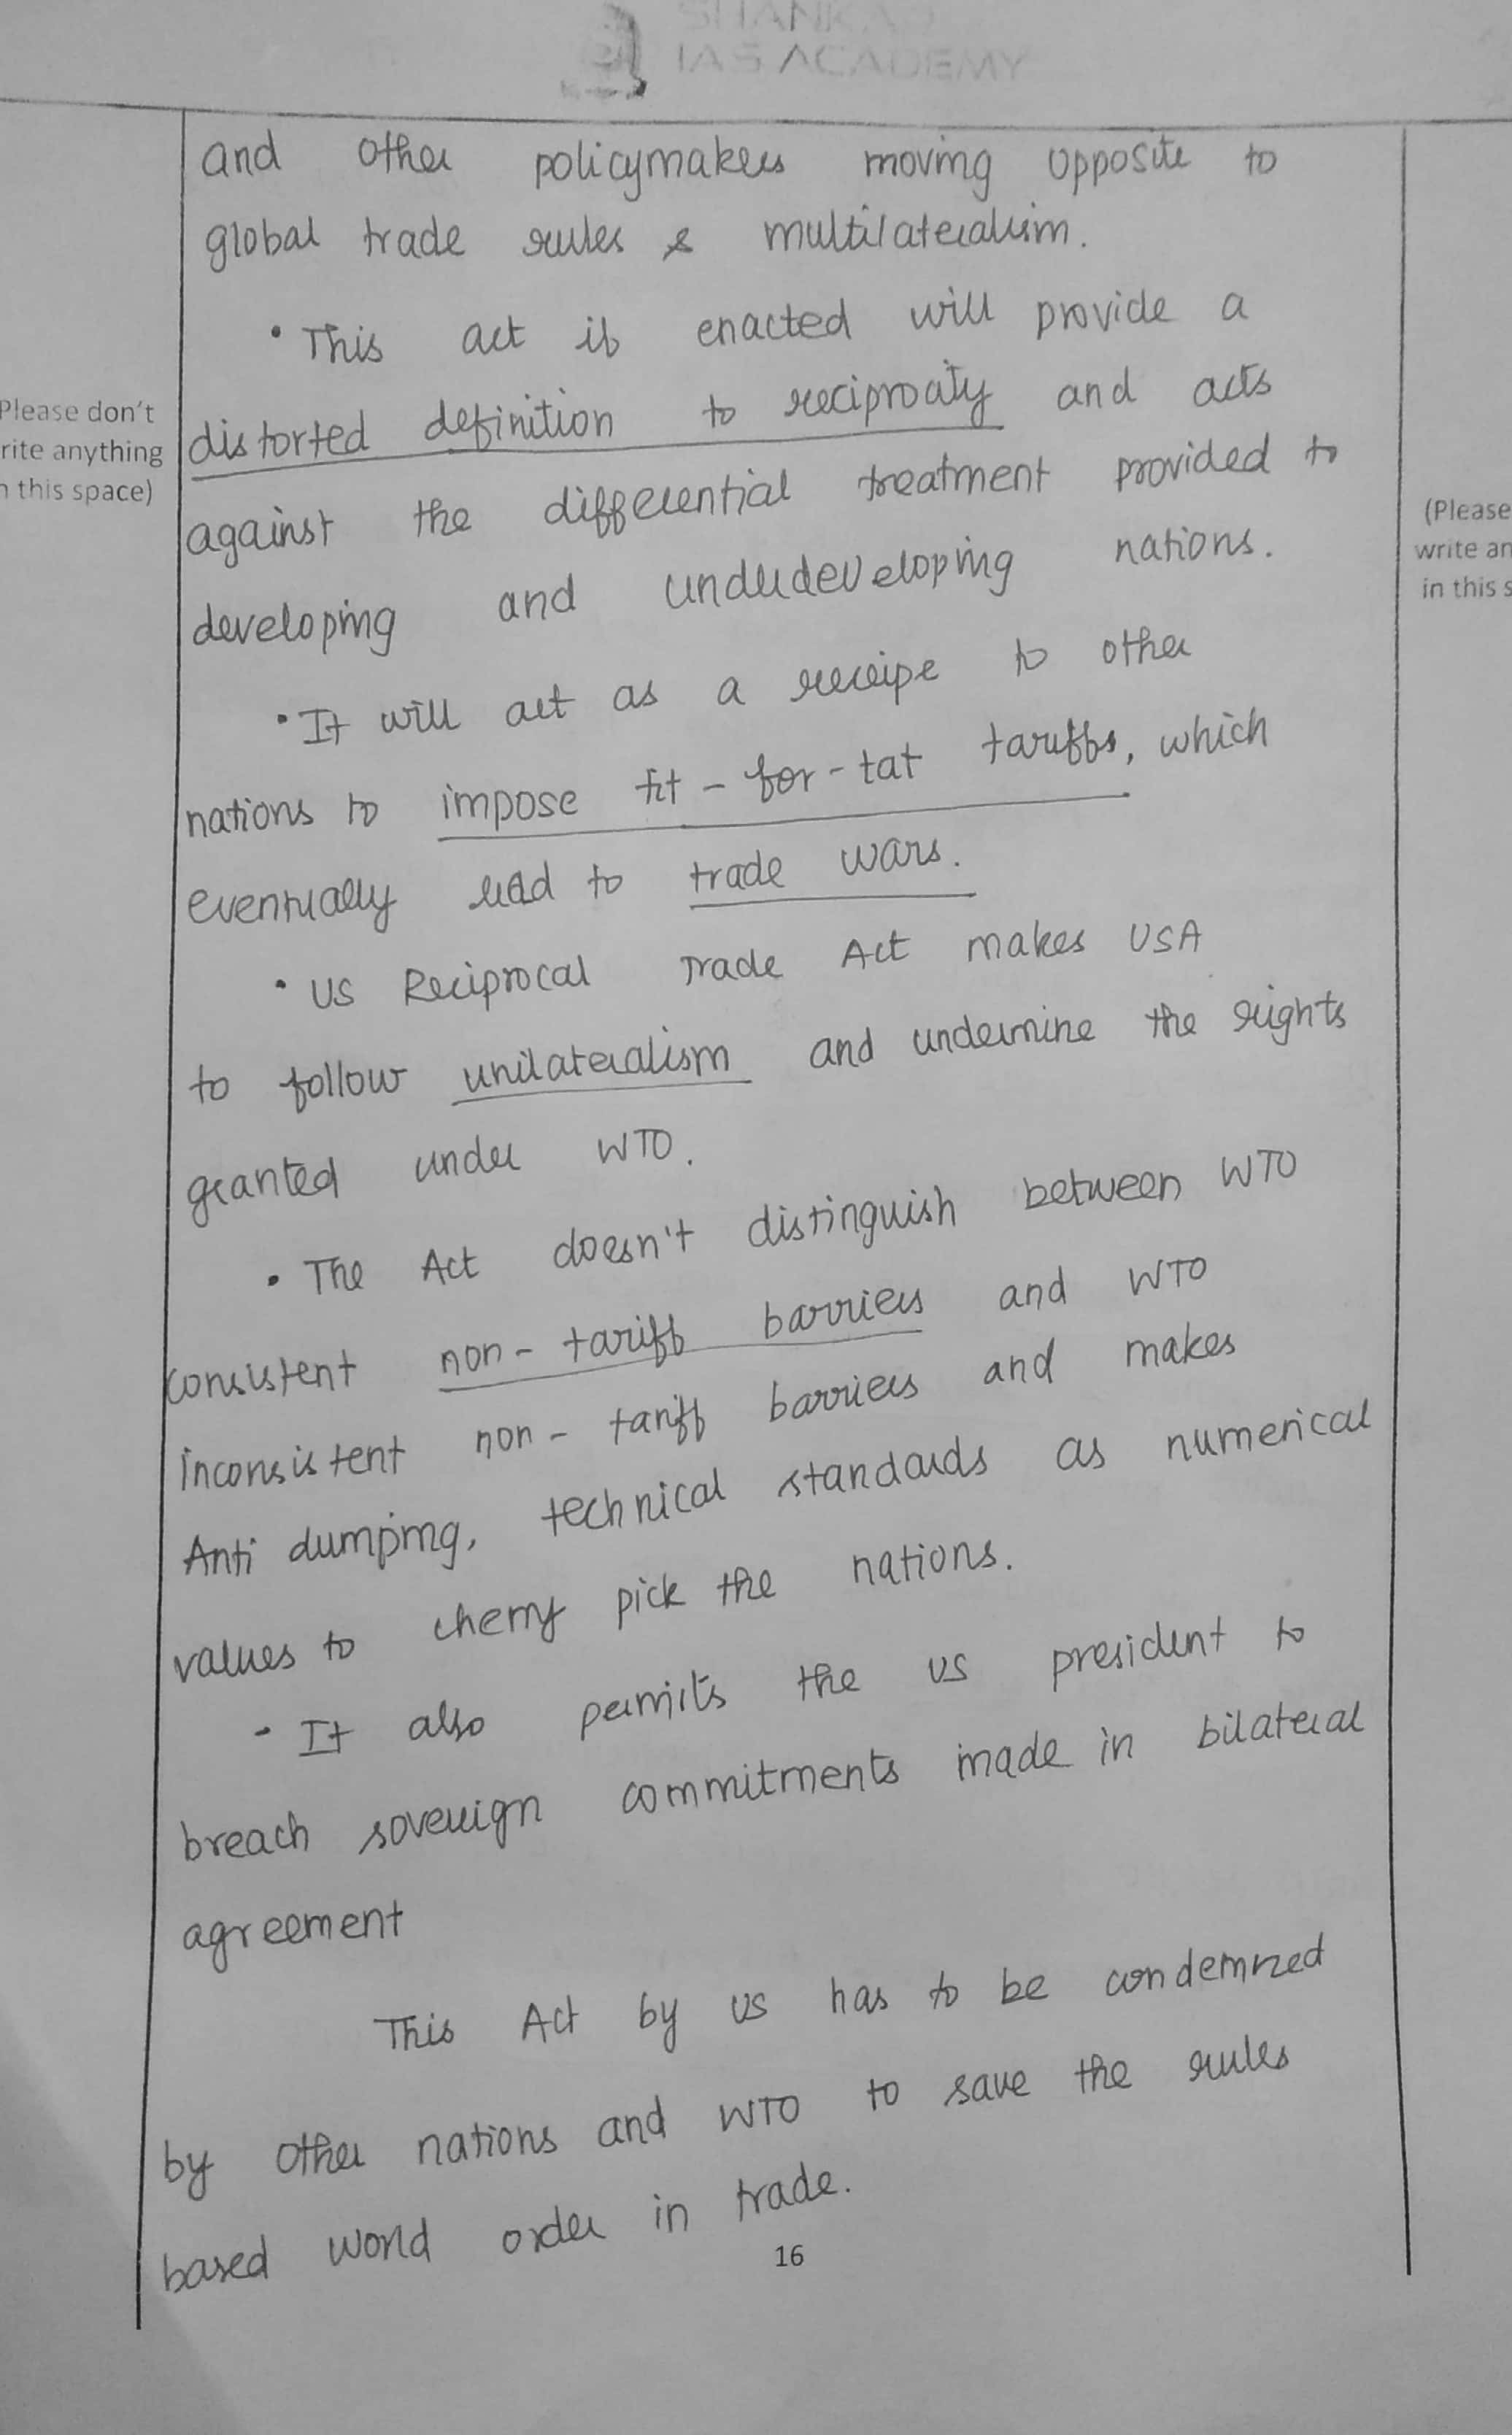 SHANKAR
IAS ACADEMY
and other policymakers moving opposite to
global trade rules & multilateralism.
• This act if enacted will provide a
distorted definition to reciprocity and acts
against the differential treatment provided to
developing and underdeveloping nations.
• It will act as a receipe to other
nations to impose tit-for-tat tariffs, which
eventually lead to trade wars.
• US Reciprocal Trade Act makes USA
to follow unilateralism and undermine the rights
granted under WTO.
• The Act doesn't distinguish between WTO
consistent non-tariff barriers and WTO
inconsistent non-tariff barriers and makes
Anti dumping, technical standards as numerical
values to cherry pick the nations.
- It also permits the US president to
breach sovereign commitments made in bilateral
agreement
This Act by US has to be condemned
by other nations and WTO to save the rules
based world order in trade.
16
Please don't
rite anything
n this space)
(Please
write an
in this s